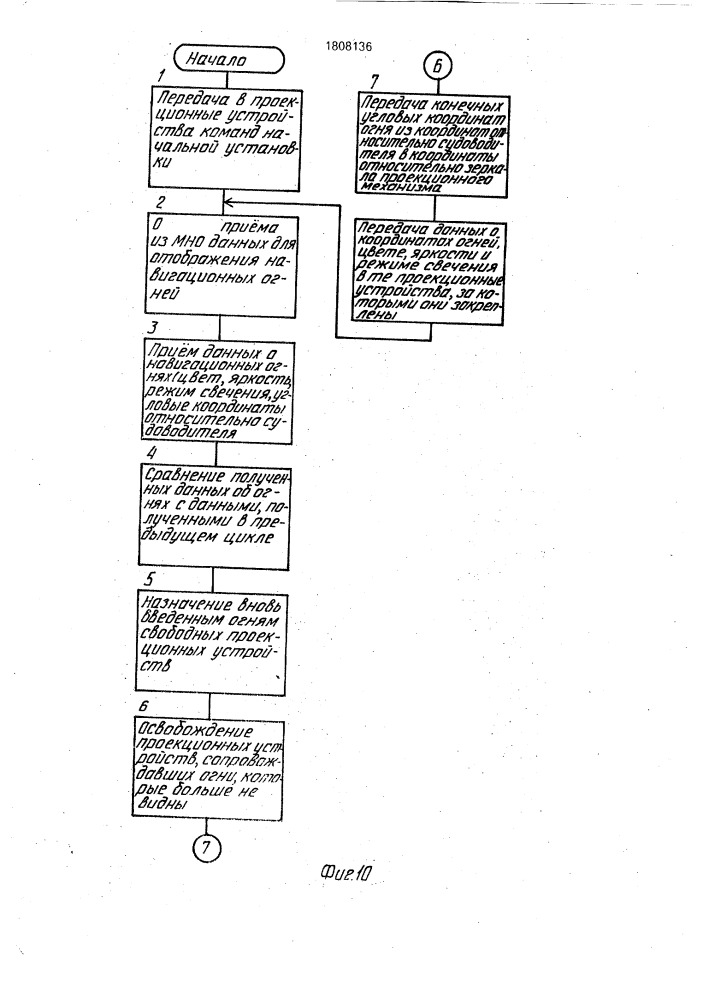 1808136
Начало
1
Передача в проек-
ционные устрой-
ства команд на-
чальной установ-
ки
2
О приёма
из МНО данных для
отображения на-
вигационных ог-
ней
3
Приём данных о
навигационных ог-
нях(цвет, яркость,
режим свечения, уг-
ловые координаты
относительно су-
доводителя
4
Сравнение получен-
ных данных об ог-
нях с данными, по-
лученными в пре-
дыдущем цикле
5
Назначение вновь
введенным огням
свободных проек-
ционных устрой-
ств
6
Освобождение
проекционных уст-
ройств, сопровож-
давших огни, кото-
рые больше не
видны
7
6
7
Передача конечных
угловых координат
огня из координат от-
носительно судоводи-
теля в координаты
относительно зерка-
ла проекционного
механизма
Передача данных о
координатах огней,
цвете, яркости и
режиме свечения
в те проекционные
устройства, за ко-
торыми они закреп-
лены
Фиг.10